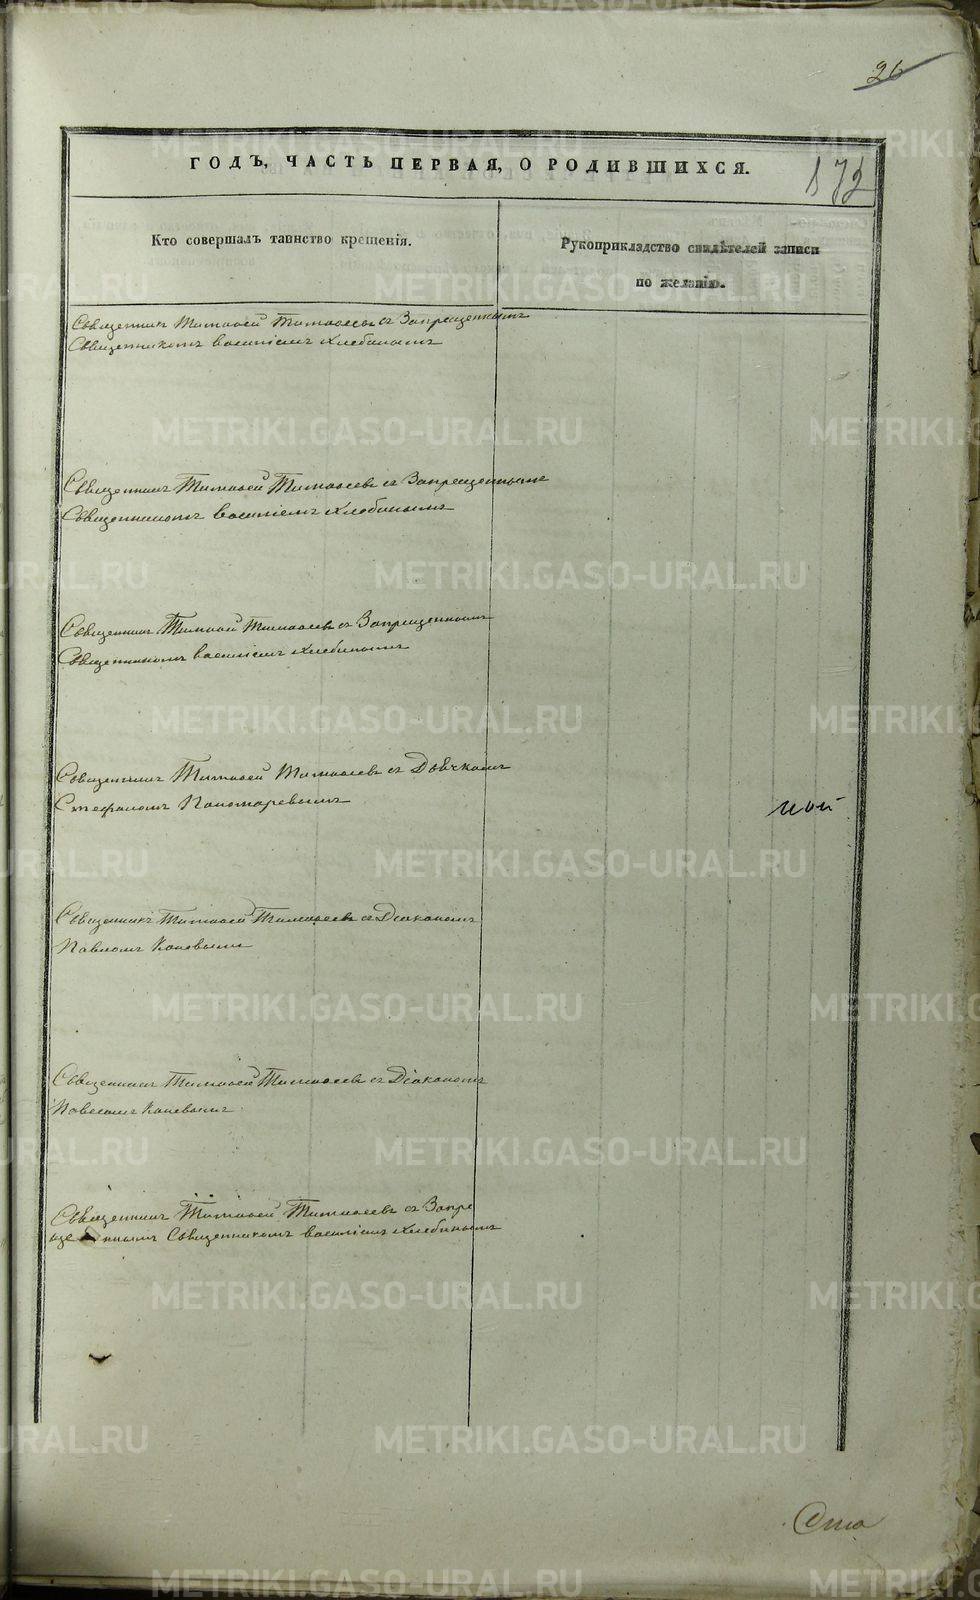 26
172
ГОДЪ, ЧАСТЬ ПЕРВАЯ, О РОДИВШИХСЯ.
Кто совершалъ таинство крещенія.
Рукоприкладство свидѣтелей записи
по желанію.
Священникъ Тимофей Тимофеевъ съ Запрещеннымъ
Священникомъ Василіемъ Хлебинымъ
Священникъ Тимофей Тимофеевъ съ Запрещеннымъ
Священникомъ Василіемъ Хлебинымъ
Священникъ Тимофей Тимофеевъ съ Запрещеннымъ
Священникомъ Василіемъ Хлебинымъ
Священникъ Тимофей Тимофеевъ съ Дьячкомъ
Стефаномъ Пономаревымъ
Священникъ Тимофей Тимофеевъ съ Діакономъ
Павломъ Коневымъ
Священникъ Тимофей Тимофеевъ съ Діакономъ
Павломъ Коневымъ
Священникъ Тимофей Тимофеевъ съ Запре
щеннымъ Священникомъ Василіемъ Хлебинымъ
METRIKI.GASO-URAL.RU